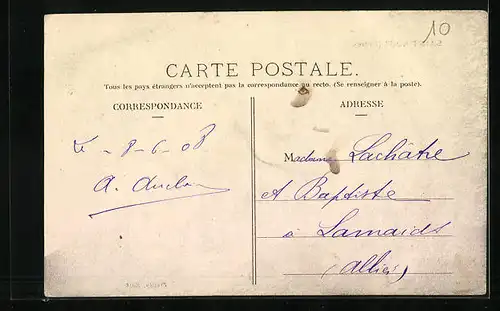 10
CARTE POSTALE.
Tous les pays étrangers n'acceptent pas la correspondance au recto. (Se renseigner à la poste).
CORRESPONDANCE
ADRESSE
Le - 8 - 6 - 08
A.
Madame Lachâtre
et Baptiste
à Lamaids
(Allier)